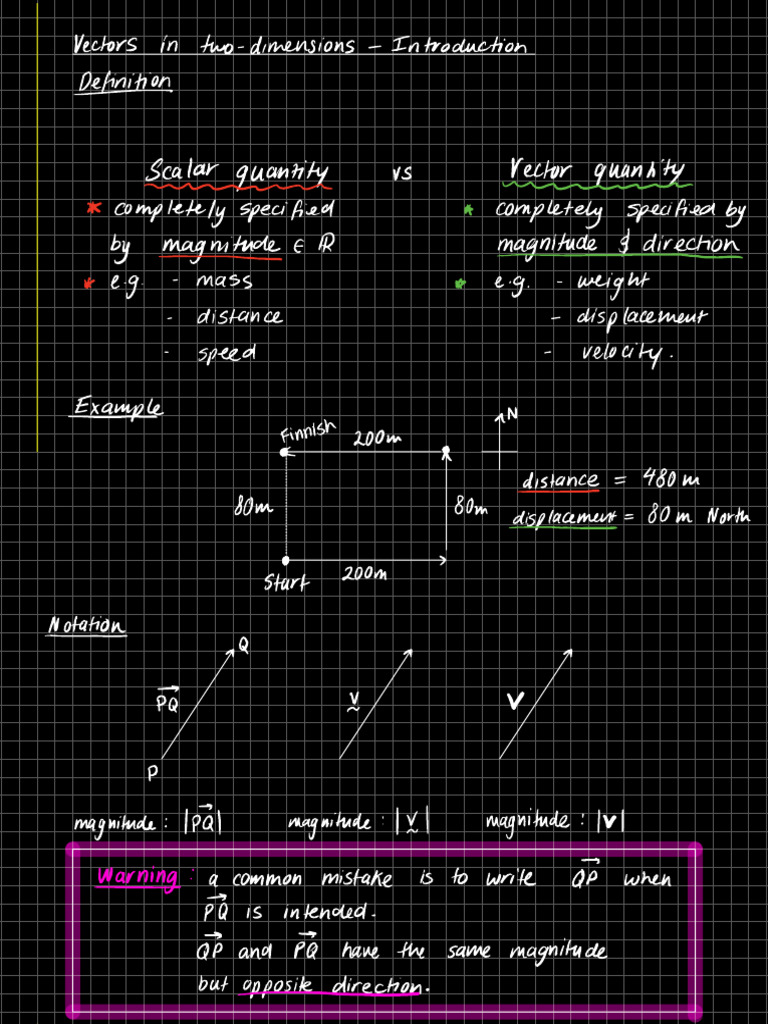 Vectors in two-dimensions – Introduction
Definition
Scalar quantity vs Vector quantity
* completely specified
by magnitude ∈ ℝ
* e.g. - mass
- distance
- speed
* completely specified by
magnitude & direction
* e.g. - weight
- displacement
- velocity.
Example
Finnish
200m
N
80m
80m
distance = 480 m
displacement = 80 m North
Start
200m
Notation
Q
PQ→
P
v̰
v
magnitude: |PQ→| magnitude: |v̰| magnitude: |v|
Warning: a common mistake is to write QP→ when
PQ→ is intended.
QP→ and PQ→ have the same magnitude
but opposite direction.